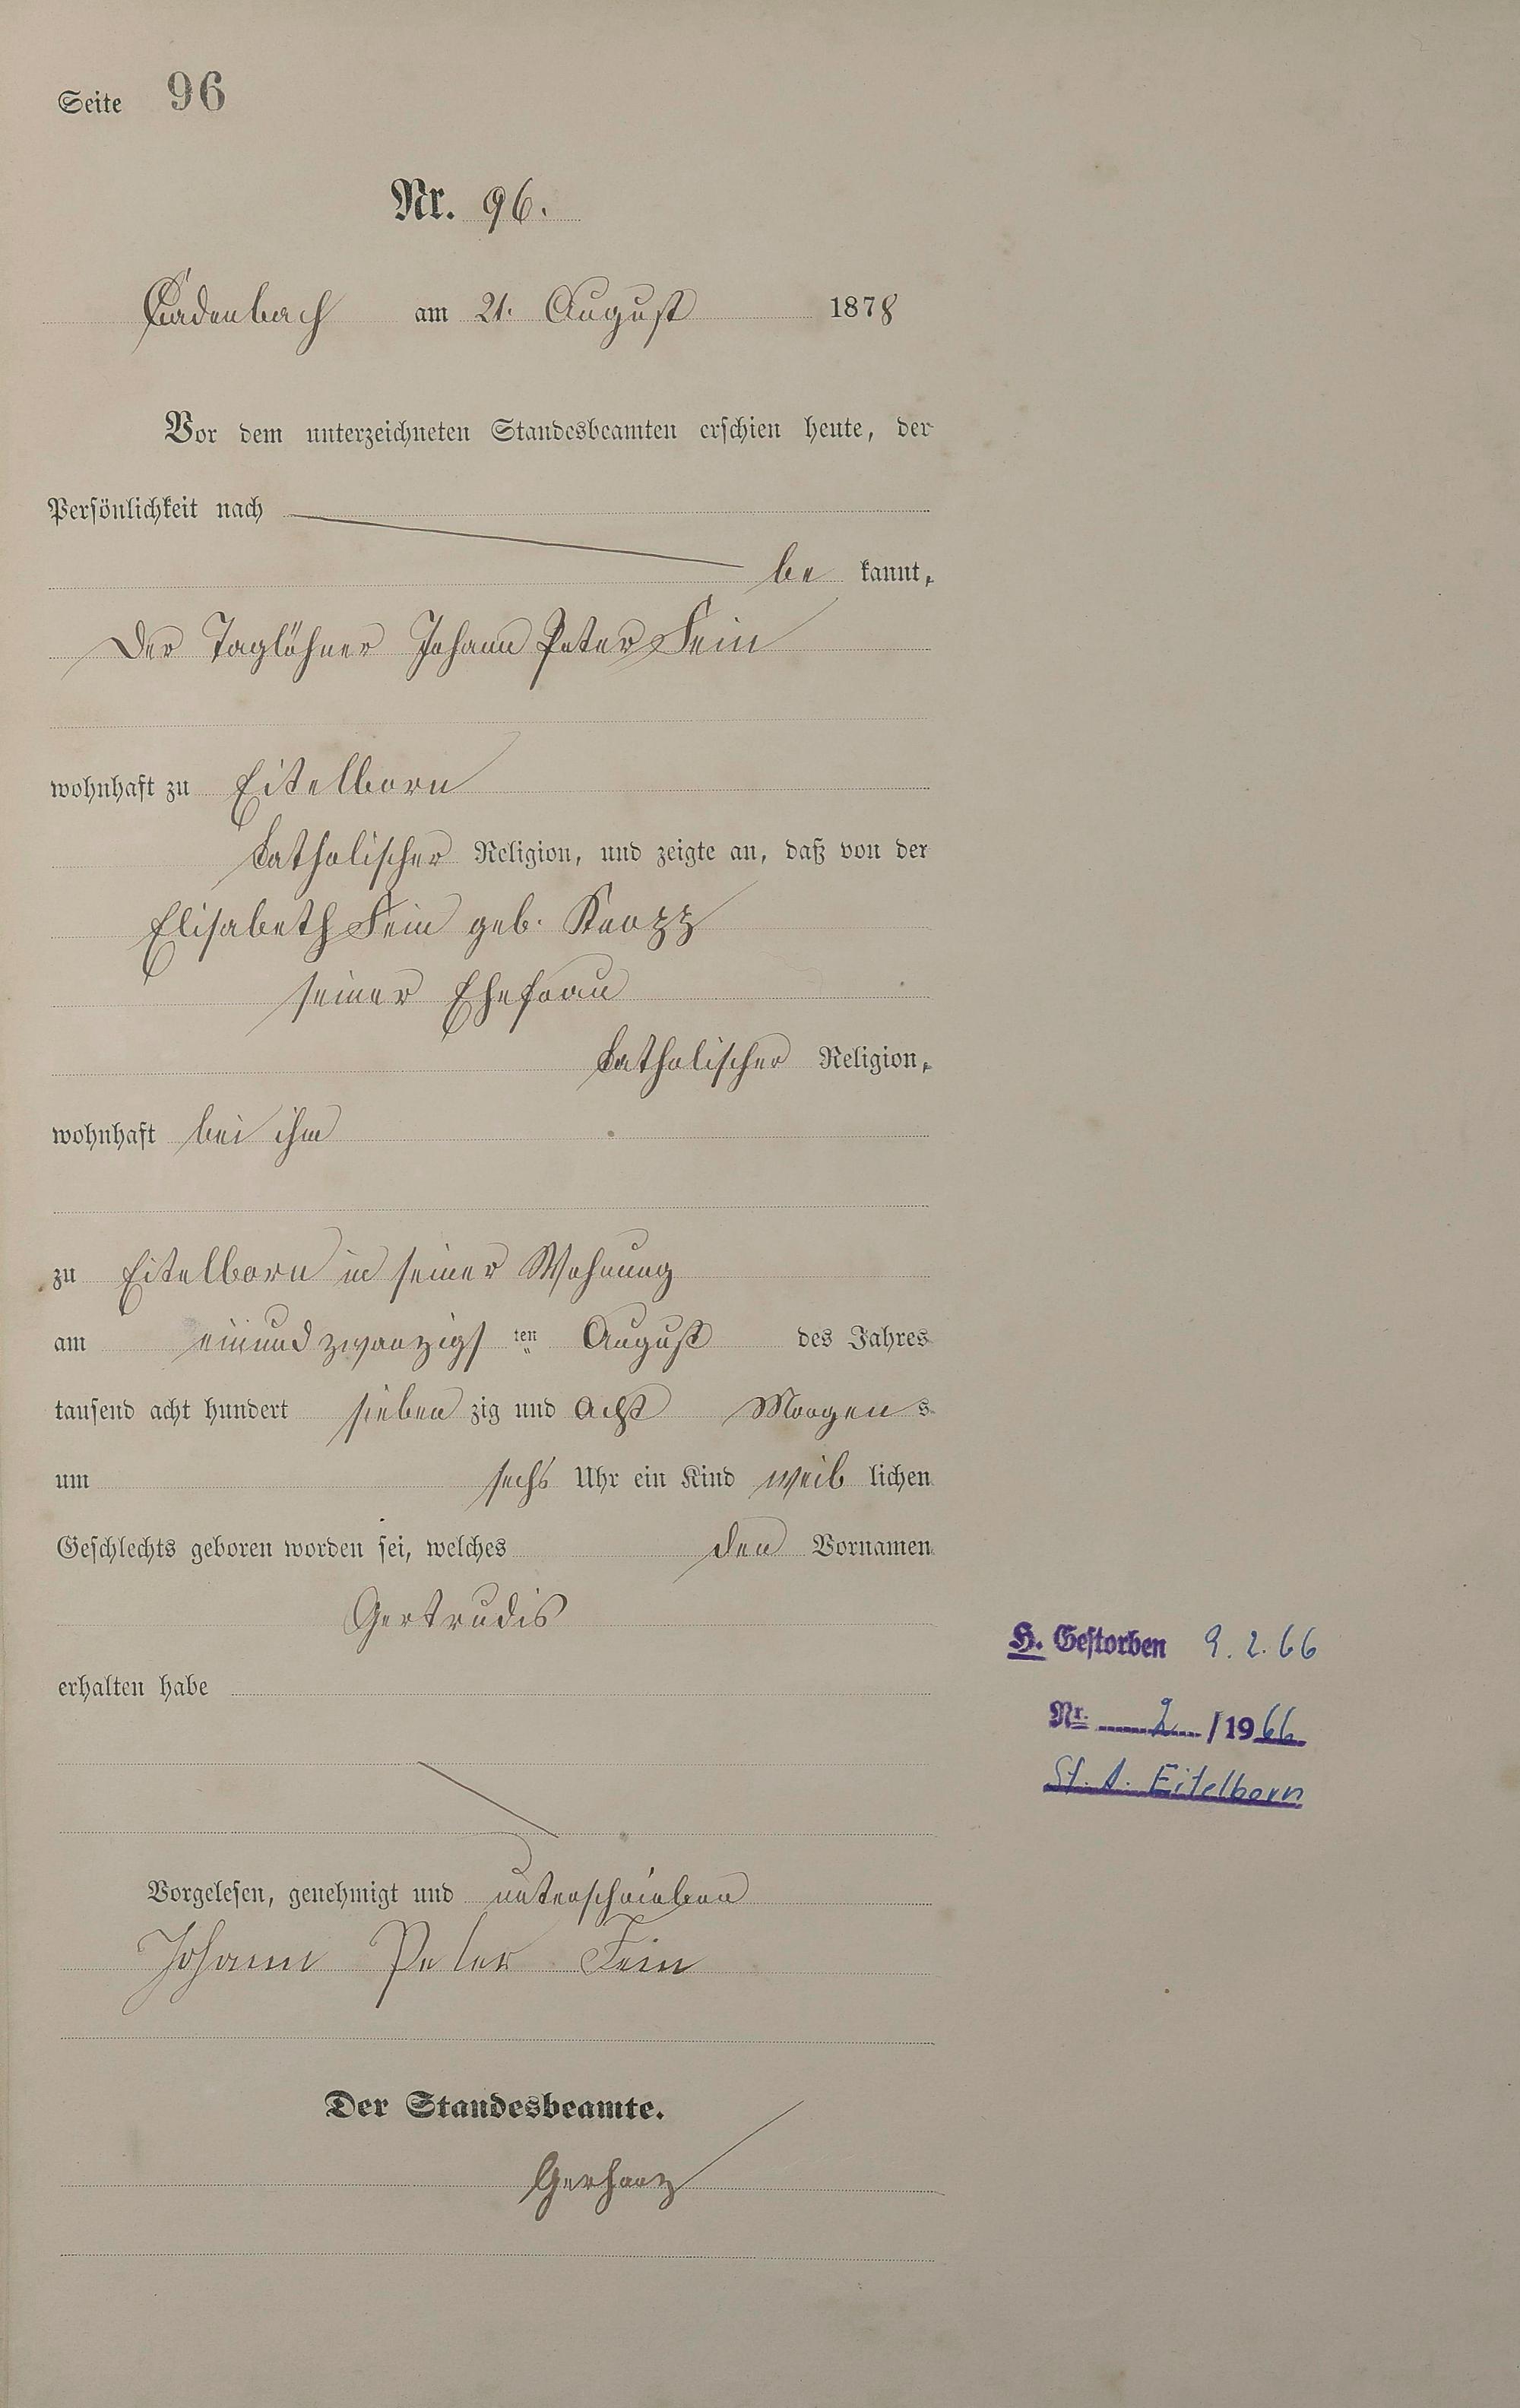 Seite 96
Nr. 96.
Cadenbach am 21. August 1878
Vor dem unterzeichneten Standesbeamten erschien heute, der
Persönlichkeit nach
be kannt,
Der Taglöhner Johann Peter Fein
wohnhaft zu Eitelborn
katholischer Religion, und zeigte an, daß von der
Elisabeth Fein geb. Knopp
seiner Ehefrau
katholischer Religion,
wohnhaft bei ihm
zu Eitelborn in seiner Wohnung
am einund zwanzigs ten August des Jahres
tausend acht hundert sieben zig und acht Morgen s
um sechs Uhr ein Kind weib lichen
Geschlechts geboren worden sei, welches den Vornamen
Gertrudis
erhalten habe
H. Gestorben 9.2.66
Nr. 2 / 1966
St. A. Eitelborn
Vorgelesen, genehmigt und unterschrieben
Johann Peter Fein
Der Standesbeamte.
Gerharz